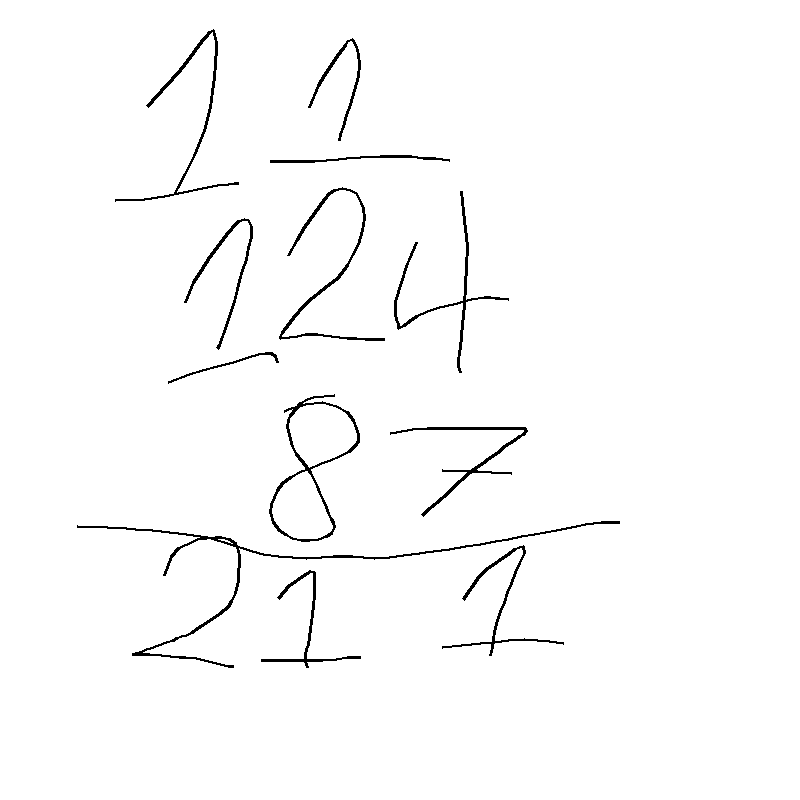 1 1
124
87
211